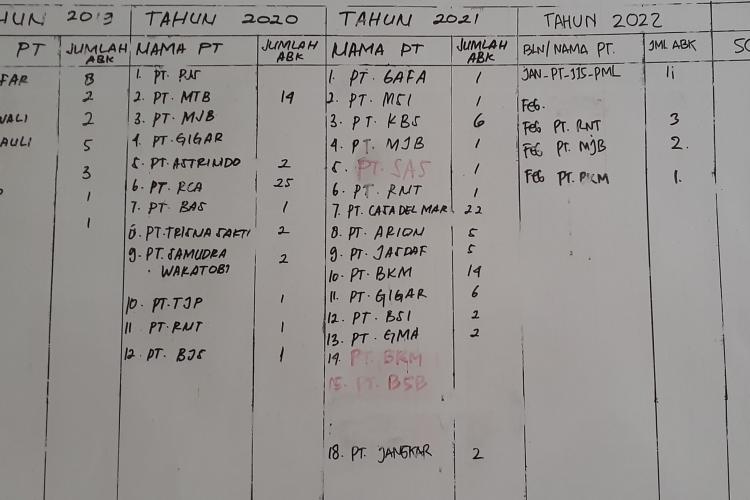 HUN 2019 TAHUN 2020 TAHUN 2021 TAHUN 2022
PT JUMLAH ABK NAMA PT JUMLAH ABK NAMA PT JUMLAH ABK BLN/NAMA PT. JML ABK
FAR 8
2
WALI 2
AULI 5
3
1
1
1. PT. RN
2. PT. MTB 14
3. PT. MJB
4. PT. GIGAR
5. PT. ASTRINDO 2
6. PT. RCA 25
7. PT. BAS 1
8. PT. TRISNA SAKTI 2
9. PT. SAMUDRA 2
WAKATOBI
10. PT. TJP 1
11 PT. RNT 1
12. PT. BJS 1
1. PT. GAFA 1
2. PT. MSI 1
3. PT. KBS 6
4. PT. MJB 1
5. PT. SAS 1
6. PT. RNT 1
7. PT. CASA DEL MAR 22
8. PT. ARION 5
9. PT. JASDAF 5
10. PT. BKM 14
11. PT. GIGAR 6
12. PT. BSI 2
13. PT. GMA 2
14. PT. BKM
15. PT. BSB
18. PT. JANGKAR 2
JAN-PT-JJS-PML 11
FEB.
FEB PT. RNT 3
FEB PT. MJB 2.
FEB PT. PKM 1.